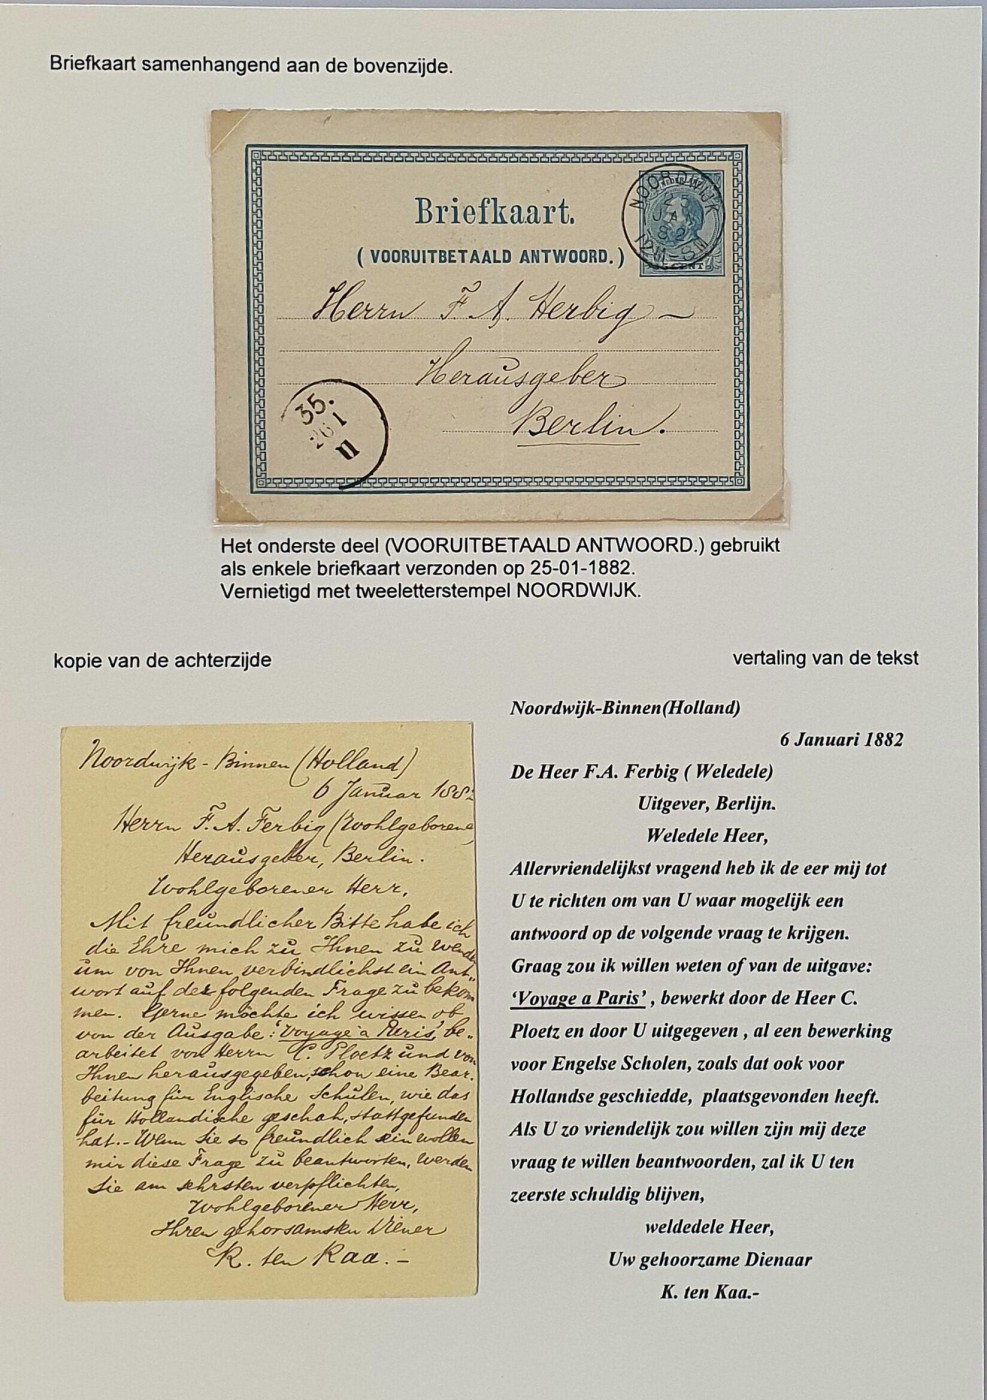 Briefkaart samenhangend aan de bovenzijde.
Briefkaart.
( VOORUITBETAALD ANTWOORD. )
NOORDWIJK
Herrn F. A. Herbig
Herausgeber
Berlin.
35.
26 1
Het onderste deel (VOORUITBETAALD ANTWOORD.) gebruikt
als enkele briefkaart verzonden op 25-01-1882.
Vernietigd met tweeletterstempel NOORDWIJK.
kopie van de achterzijde
Noordwijk - Binnen (Holland)
6 Januar 188
Herrn F. A. Ferbig (Wohlgeborene
Herausgeber, Berlin.
Wohlgeborener Herr,
Mit freundlicher Bitte habe ich
die Ehre mich zu Ihnen zu wende
um von Ihnen verbindlichst ein Ant-
wort auf der folgenden Frage zu bekom
men. Gerne möchte ich wissen ob
von der Ausgabe: 'Voyage a Paris', be-
arbeitet von Herrn C. Ploetz und von
Ihnen herausgegeben, schon eine Bear-
beitung für Englische Schulen, wie das
für Holländische geschah, stattgefunden
hat.- Wenn Sie so freundlich sein wollen
mir diese Frage zu beantworten, werden
Sie am sehrsten verpflichten,
Wohlgeborener Herr,
Ihren gehorsamsten Diener
K. ten Kaa.-
vertaling van de tekst
Noordwijk-Binnen(Holland)
6 Januari 1882
De Heer F.A. Ferbig ( Weledele)
Uitgever, Berlijn.
Weledele Heer,
Allervriendelijkst vragend heb ik de eer mij tot
U te richten om van U waar mogelijk een
antwoord op de volgende vraag te krijgen.
Graag zou ik willen weten of van de uitgave:
'Voyage a Paris' , bewerkt door de Heer C.
Ploetz en door U uitgegeven , al een bewerking
voor Engelse Scholen, zoals dat ook voor
Hollandse geschiedde, plaatsgevonden heeft.
Als U zo vriendelijk zou willen zijn mij deze
vraag te willen beantwoorden, zal ik U ten
zeerste schuldig blijven,
weldedele Heer,
Uw gehoorzame Dienaar
K. ten Kaa.-